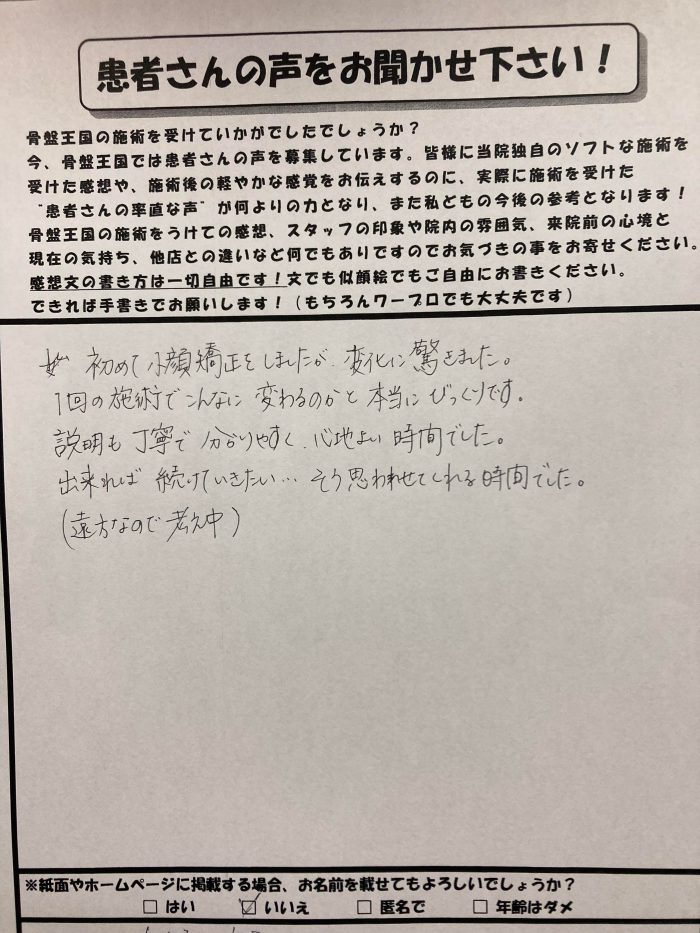 患者さんの声をお聞かせ下さい！
骨盤王国の施術を受けていかがでしたでしょうか？
今、骨盤王国では患者さんの声を募集しています。皆様に当院独自のソフトな施術を
受けた感想や、施術後の軽やかな感覚をお伝えするのに、実際に施術を受けた
"患者さんの率直な声"が何よりの力となり、また私どもの今後の参考となります！
骨盤王国の施術をうけての感想、スタッフの印象や院内の雰囲気、来院前の心境と
現在の気持ち、他店との違いなど何でもありですのでお気づきの事をお寄せください。
感想文の書き方は一切自由です！文でも似顔絵でもご自由にお書きください。
できれば手書きでお願いします！（もちろんワープロでも大丈夫です）
初めて小顔矯正をしましたが、変化に驚きました。
1回の施術でこんなに変わるのかと本当にびっくりです。
説明も丁寧で分かりやすく、心地よい時間でした。
出来れば続けていきたい…そう思わせてくれる時間でした。
(遠方なので考え中)
※紙面やホームページに掲載する場合、お名前を載せてもよろしいでしょうか？
□ はい ☑ いいえ □ 匿名で □ 年齢はダメ